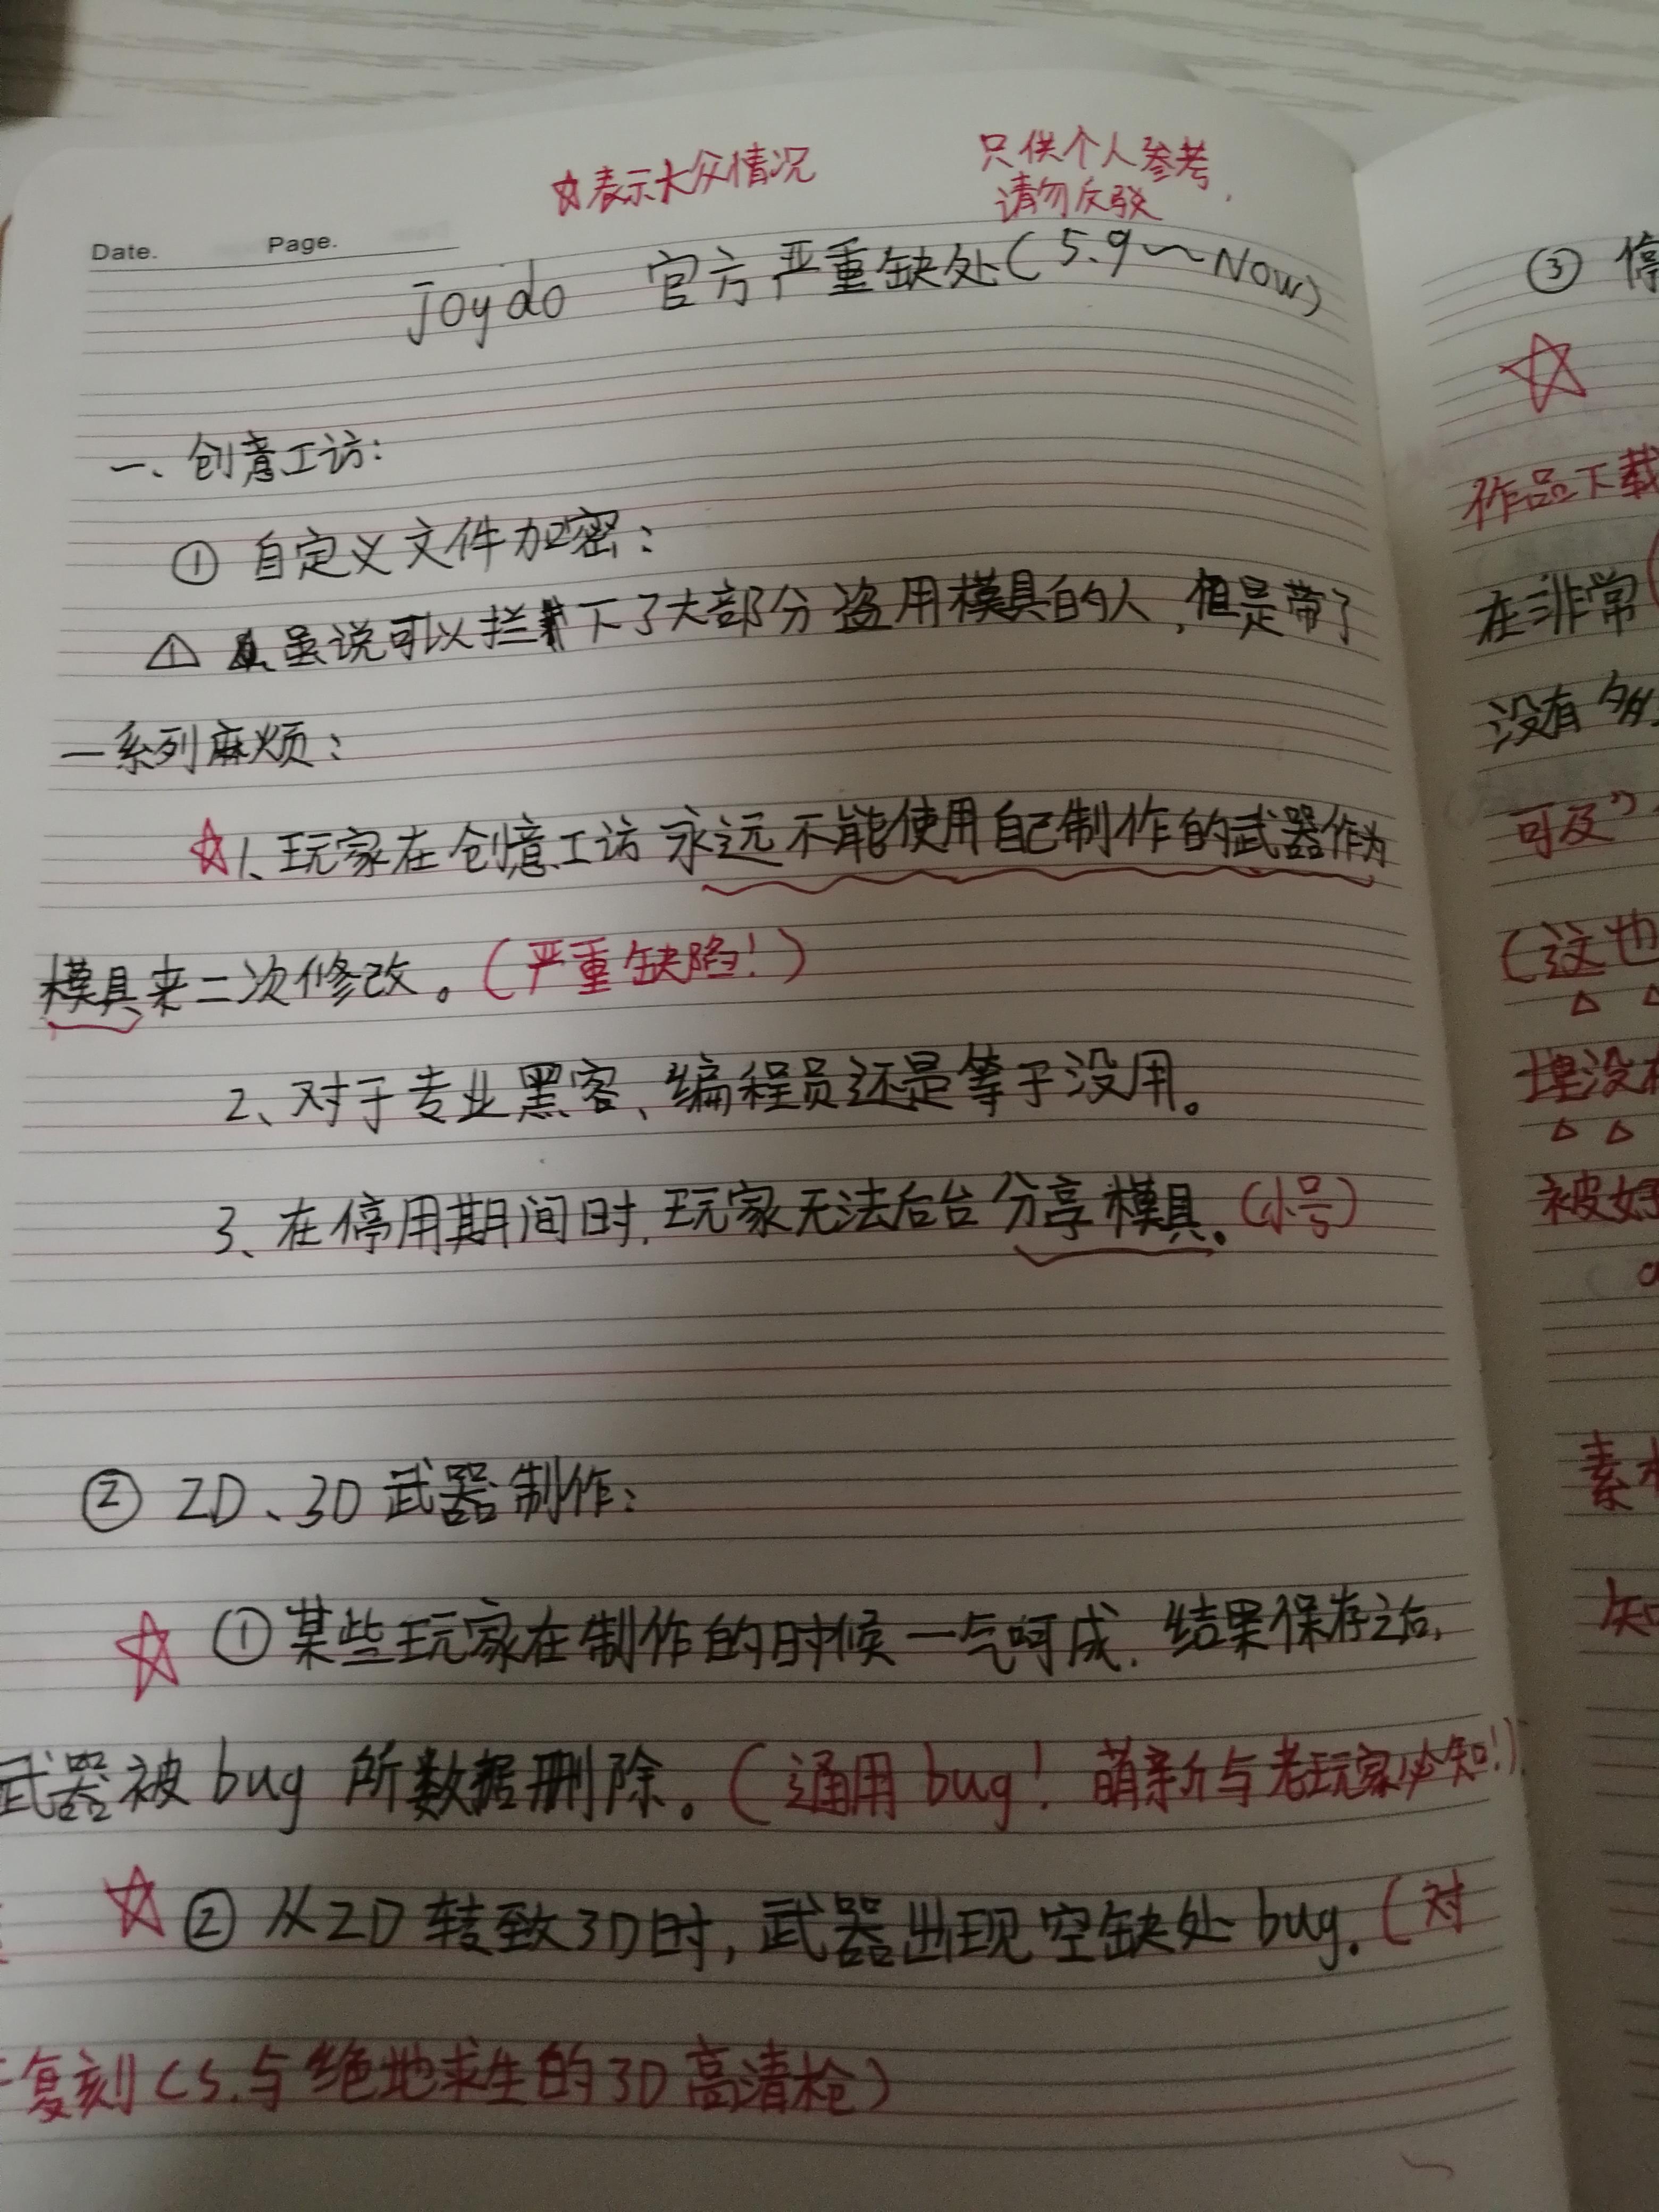 ☆表示大众情况
只供个人参考,
请勿反驳
Date. Page.
joydo 官方严重缺处(5.9~Now)
一、创意工访:
① 自定义文件加密:
虽说可以拦下了大部分盗用模具的人,但是带了
一系列麻烦:
☆1、玩家在创意工访永远不能使用自己制作的武器作为
模具来二次修改。(严重缺陷!)
2、对于专业黑客、编程员还是等于没用。
3、在停用期间时,玩家无法后台分享模具。(小号)
② 2D、3D武器制作:
☆ ①某些玩家在制作的时候一气呵成,结果保存之后,
武器被bug所数据删除。(通用bug!萌新与老玩家必知!)
☆ ② 从2D转致3D时,武器出现空缺处bug.(对
复刻CS.与绝地求生的3D高清枪)
③ 停
☆
作品下载
在非常(
没有
可及”
(这也
△ △
埋没
△ △
被
素